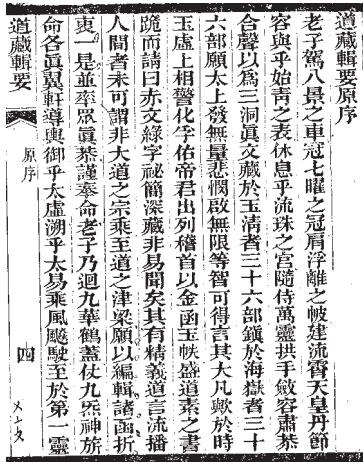 道藏輯要原序
老子駕八景之車冠七曜之冠肩浮離之帔建流霄天皇丹節
容與乎始青之表休息乎流珠之宮隨侍萬靈拱手斂容肅恭
合聲以為三洞眞文藏於玉清者三十六部鎮於海嶽者三十
六部願太上發無量悲憫啟無限等智可得言其大凡歟於時
玉虛上相警化孚佑帝君出列稽首以金函玉帙盛道素之書
跪而請曰赤文綠字祕簡深藏非易聞矣其有精義道言流播
人間者未可謂非大道之宗乘至道之津梁願以編輯諸函折
衷一是並率眾眞恭謹奉命老子乃迴九華鶴蓋仗九炁神旂
命各眞翼軒導輿御乎太虛溯乎太易乘風飈駛至於第一靈
道藏輯要
原序
四